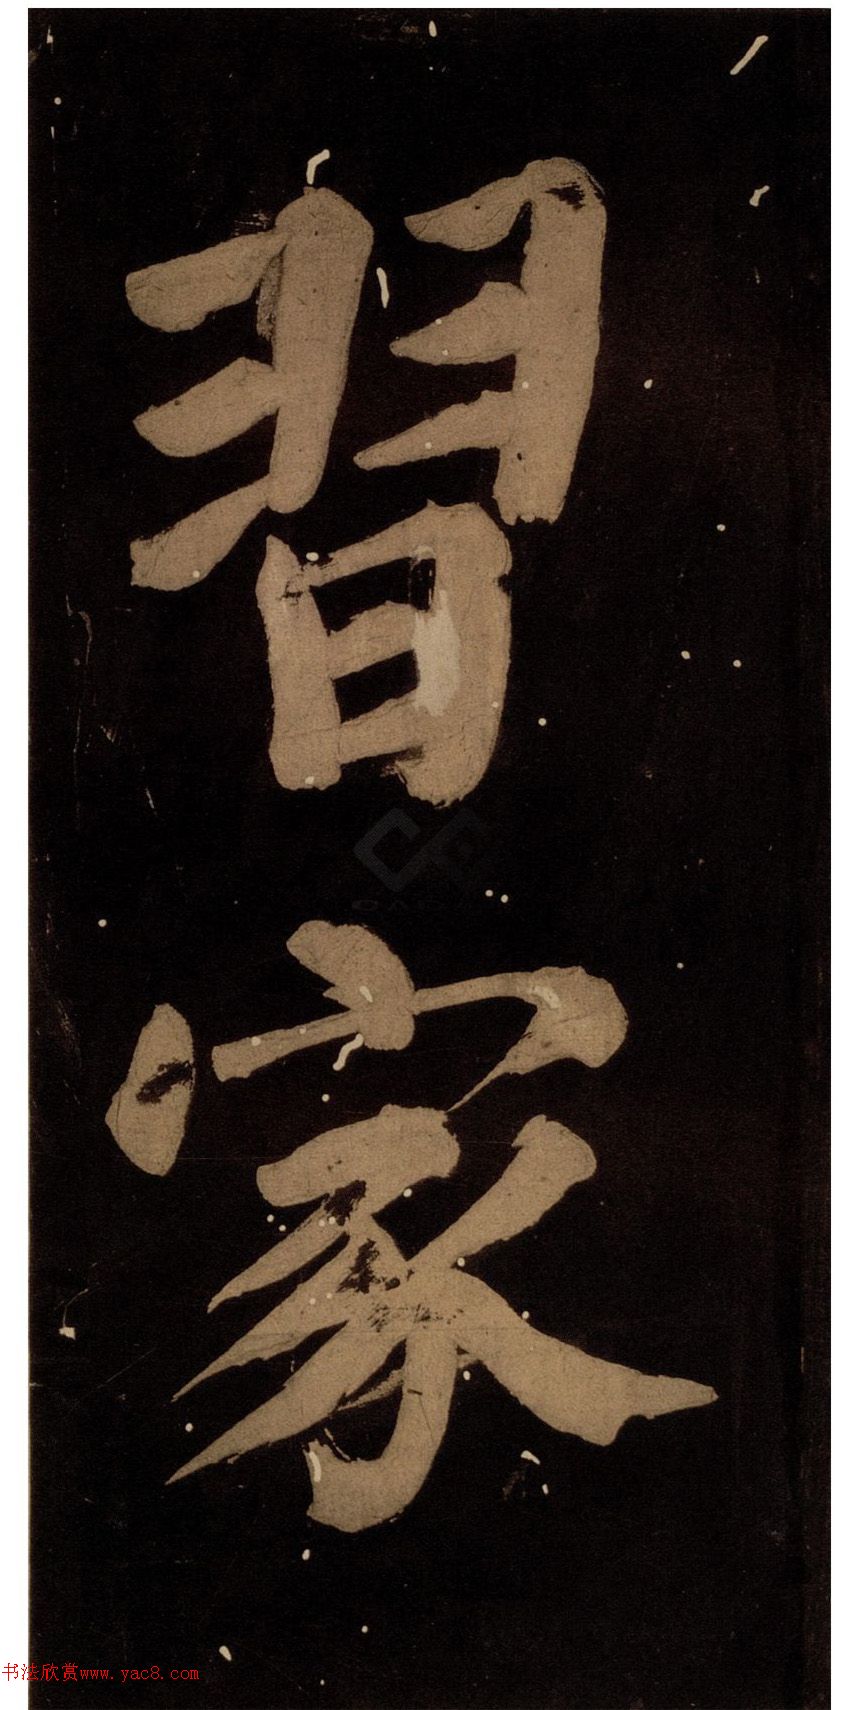 習
家
书法欣赏www.yac8.com